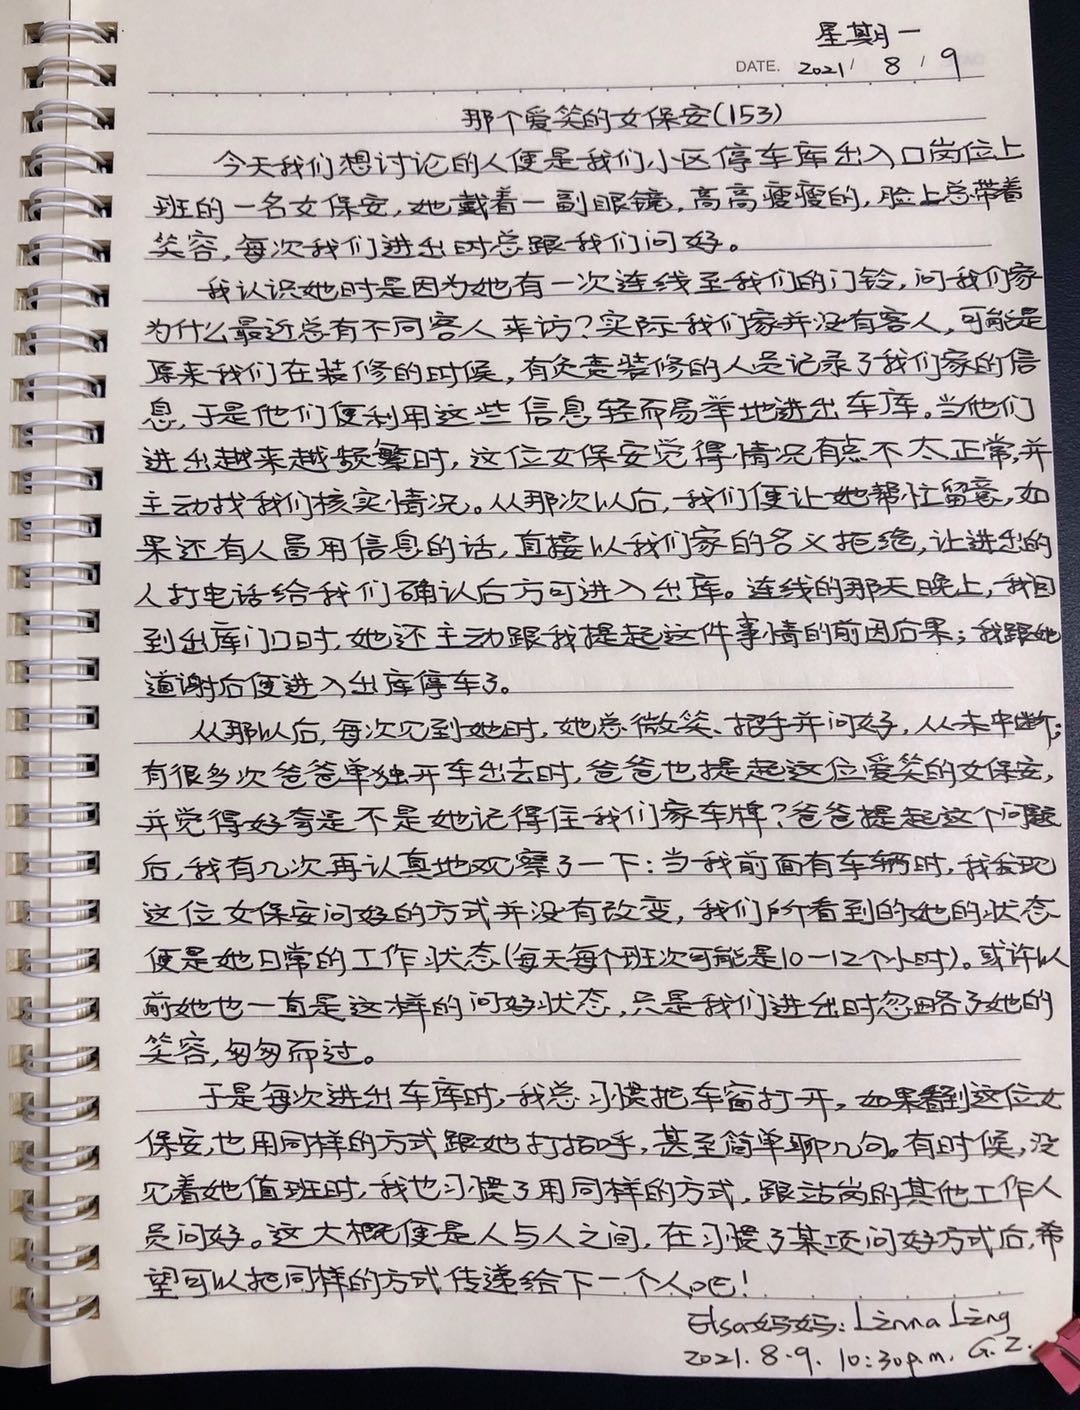 星期一
DATE. 2021 / 8 / 9
那个爱笑的女保安(153)
今天我们想讨论的人便是我们小区停车库出入口岗位上
班的一名女保安,她戴着一副眼镜,高高瘦瘦的,脸上总带着
笑容,每次我们进出时总跟我们问好。
我认识她时是因为她有一次连线至我们的门铃,问我们家
为什么最近总有不同客人来访?实际我们家并没有客人,可能是
原来我们在装修的时候,有负责装修的人员记录了我们家的信
息,于是他们便利用这些信息轻而易举地进出车库。当他们
进出越来越频繁时,这位女保安觉得情况有点不太正常,并
主动找我们核实情况。从那次以后,我们便让她帮忙留意,如
果还有人冒用信息的话,直接以我们家的名义拒绝,让进出的
人打电话给我们确认后方可进入出库。连线的那天晚上,我回
到出库门口时,她还主动跟我提起这件事情的前因后果;我跟她
道谢后便进入出库停车了。
从那以后,每次见到她时,她总微笑、招手并问好,从未中断;
有很多次爸爸单独开车出去时,爸爸也提起这位爱笑的女保安,
并觉得好奇是不是她记得住我们家车牌?爸爸提起这个问题
后,我有几次再认真地观察了一下:当我前面有车辆时,我发现
这位女保安问好的方式并没有改变,我们所看到的她的状态
便是她日常的工作状态(每天每个班次可能是10一12个小时)。或许以
前她也一直是这样的问好状态,只是我们进出时忽略了她的
笑容,匆匆而过。
于是每次进出车库时,我总习惯把车窗打开,如果看到这位女
保安,也用同样的方式跟她打招呼,甚至简单聊几句。有时候,没
见着她值班时,我也习惯了用同样的方式,跟站岗的其他工作人
员问好。这大概便是人与人之间,在习惯了某项问好方式后,希
望可以把同样的方式传递给下一个人吧!
Elsa妈妈: Linna Ling
2021.8.9. 10:30p.m. G.Z.